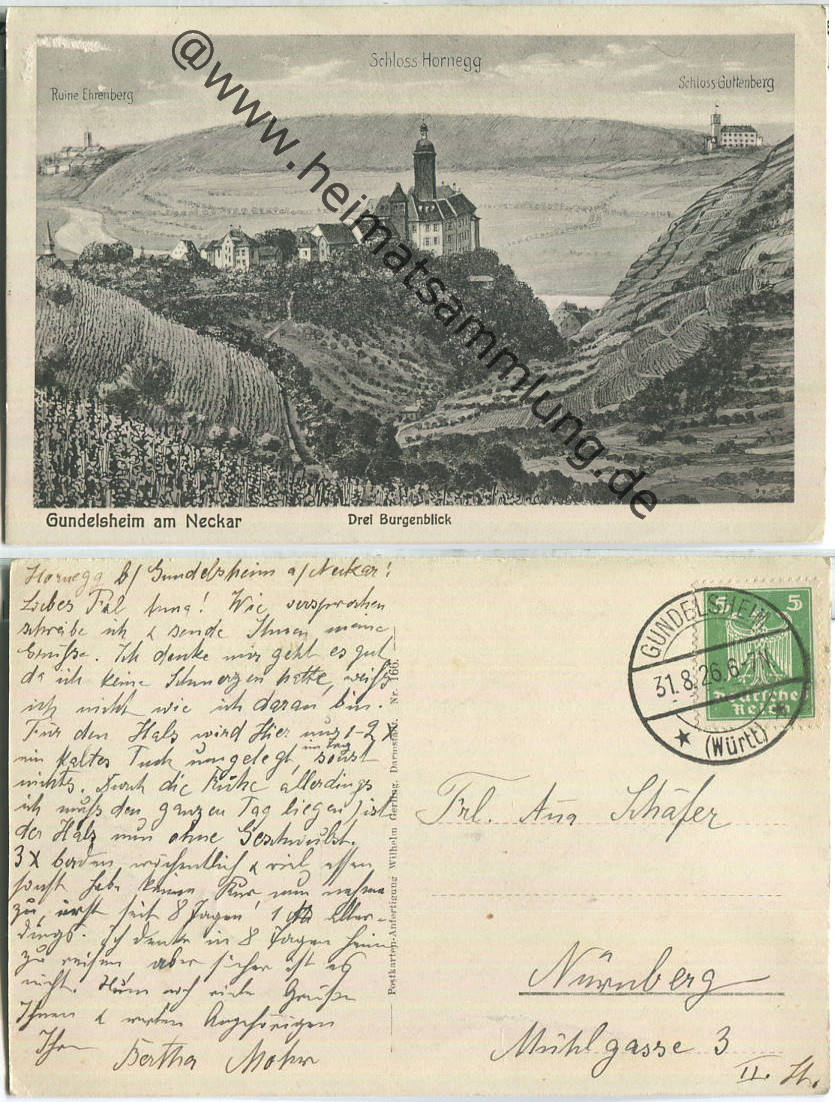 Schloss Hornegg
Ruine Ehrenberg
Schloss Guttenberg
@www.heimatsammlung.de
Gundelsheim am Neckar
Drei Burgenblick
Hornegg b/ Gundelsheim a/Neckar!
Liebes Frl. Anna! Wie versprochen
schreibe ich & sende Ihnen meine
Grüße. Ich denke mir geht es gut
da ich keine Schmerzen hatte, weiß
ich nicht wie ich daran bin.
Für den Hals wird hier nur 1-2 X
im Tag
ein kaltes Tuch umgelegt, sonst
nichts. Durch die Ruhe allerdings
ich muß den ganzen Tag liegen) ist
der Hals nun ohne Geschwulst.
3X baden wöchentlich & viel essen
sonst habe keine Kur, nun nehme
zu, erst seit 8 Tagen! 1 aller-
dings. Ich denke in 8 Tagen heim
zu reisen aber sicher ist es
nicht. Nun noch viele Grüße
Ihnen & werten Angehörigen
Ihre Bertha Mohr
Postkarten-Anfertigung Wilhelm Gerling, Darmstadt. Nr. 166.
5 5
Deutsches
Reich
GUNDELSHEIM
31.8.26.6-7N.
(Württ)
Frl. Anna Schäfer
Nürnberg
Mühlgasse 3
II. St.